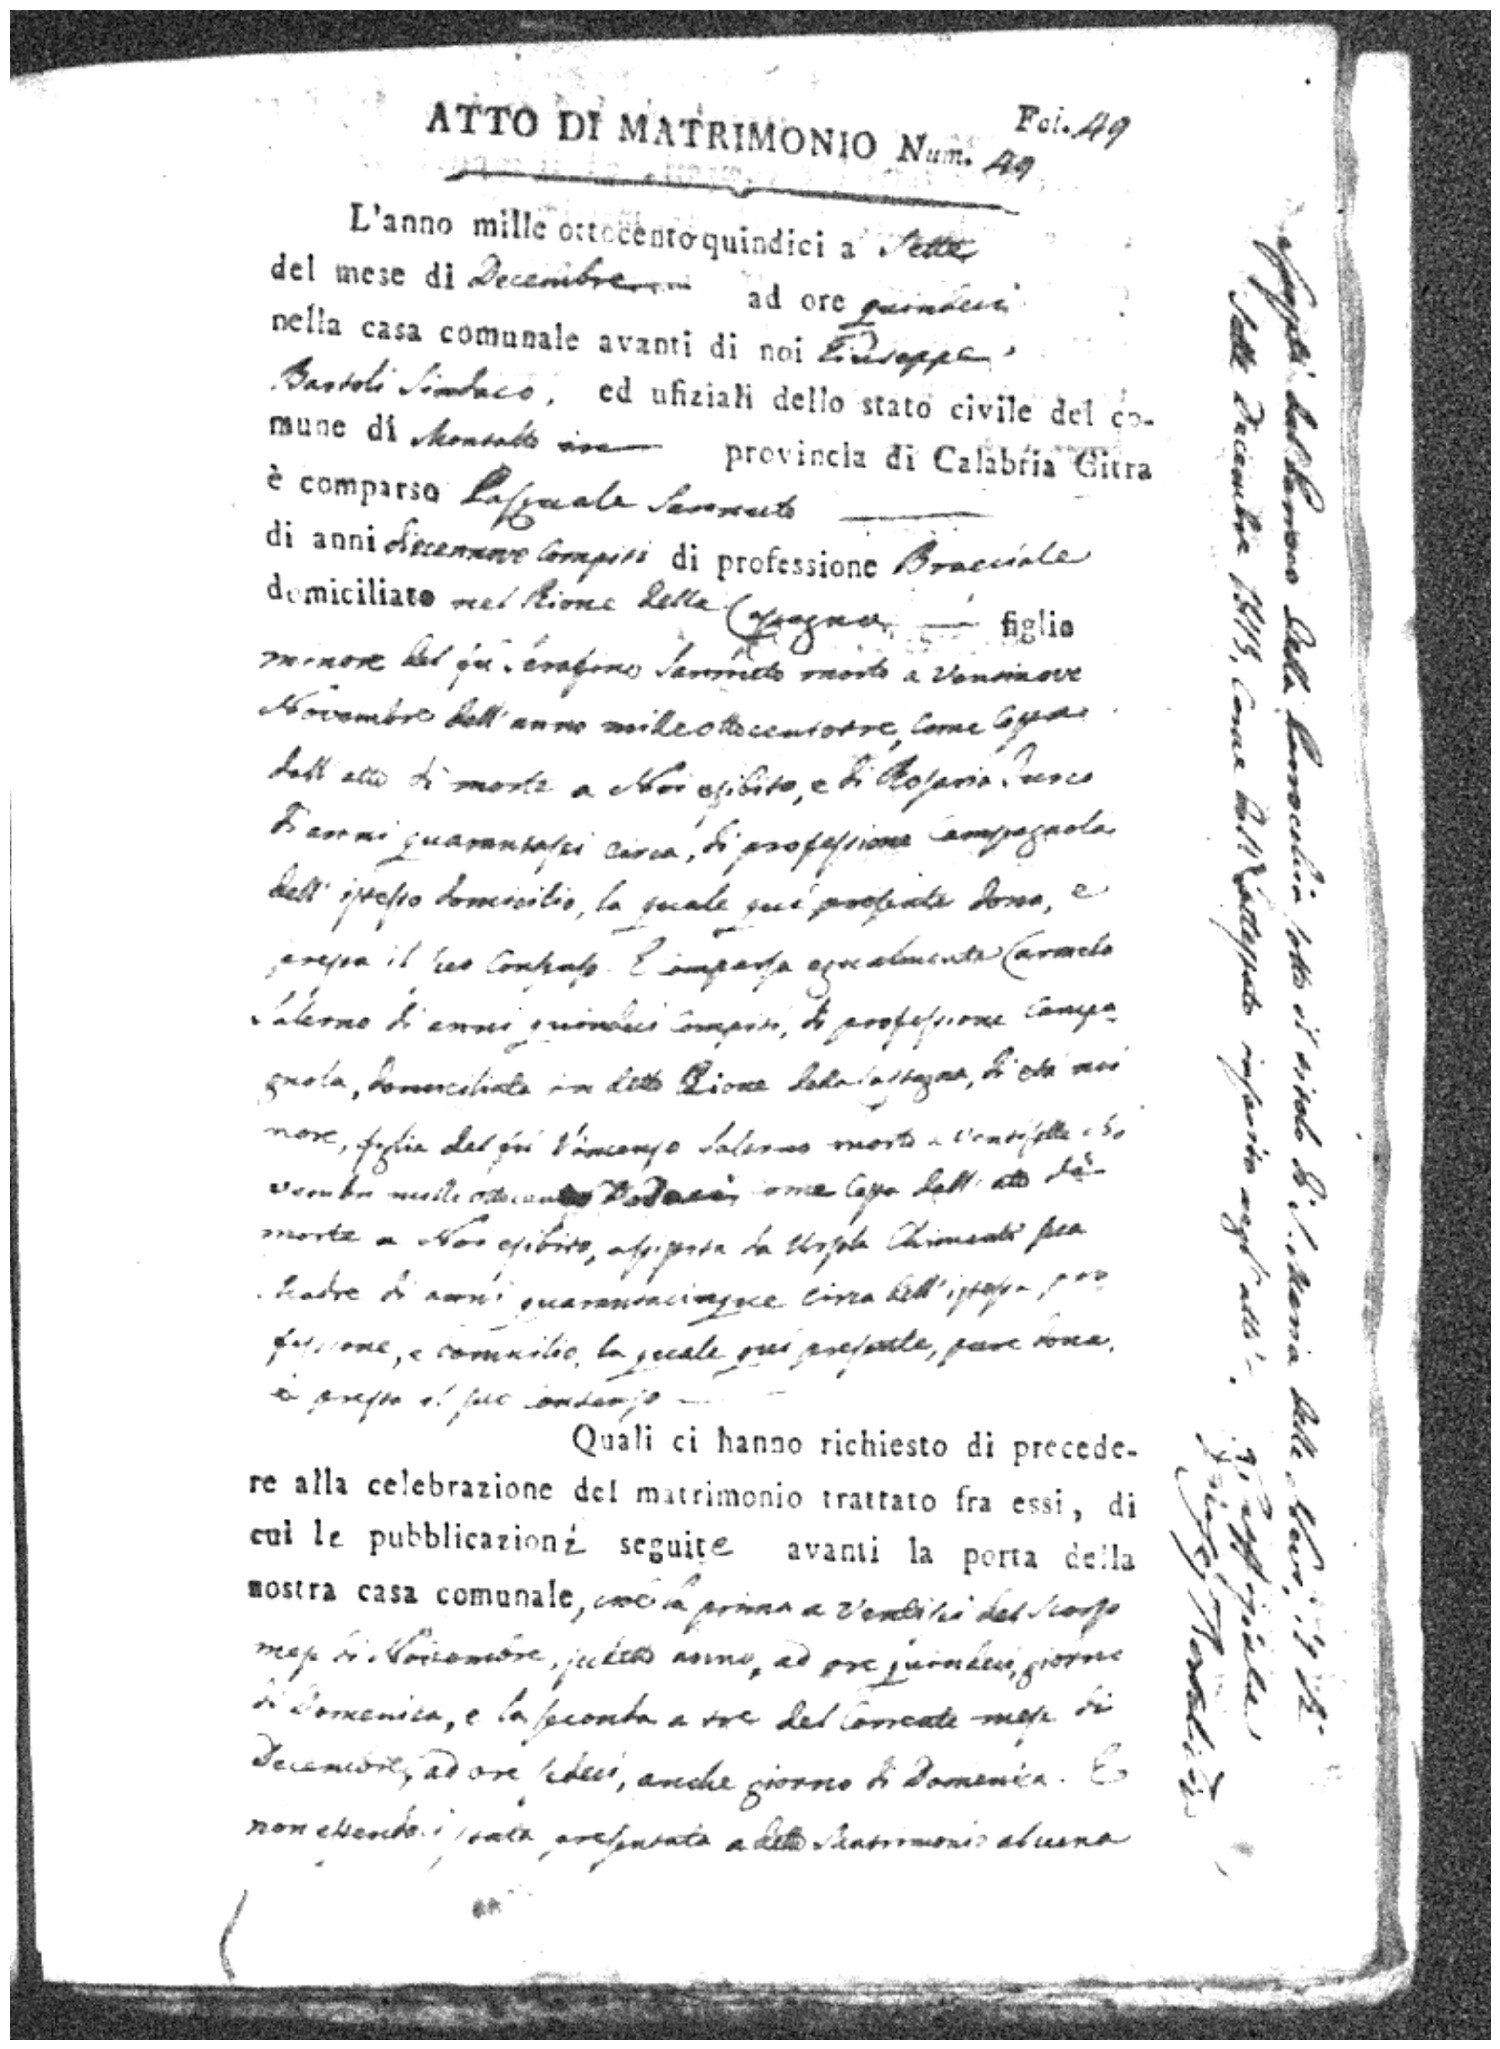 Fol. 49
ATTO DI MATRIMONIO Num. 49
L'anno mille ottocento quindici a Sette
del mese di Decembre ad ore quindeci
nella casa comunale avanti di noi Giuseppe
Bartoli Sindaco, ed ufiziali dello stato civile del co-
mune di Montalto provincia di Calabria Citra
è comparso Pasquale Sannuto
di anni diecennove compiti di professione Bracciale
domiciliato nel Rione della figlio
minore del fù Serafino Sannuto morto a Ventinove
Novembre dell'anno mille ottocentotre, come Copia
dall'atto di morte a Noi esibito, e di Rosaria Turco
di anni quarantasei circa, di professione Campagnola
dell'istesso domicilio, la quale qui presente dona, e
presta il suo Consenso. È comparsa egualmente Carmela
Salerno di anni quindeci compiti, di professione Campa-
gnola, domiciliata in detto Rione della Castagna, di età mi
nore, figlia del fù Vincenzo Salerno morto a Ventisette No
vembre mille ottocento Dodeci, come Copia dell'atto di
morte a Noi esibito, assistita da Ursola Chimenti sua
Madre di anni quarantacinque circa dell'istessa pro
fessione, e domicilio, la quale qui presente, pure dona,
e presta il suo consenso
Quali ci hanno richiesto di precede-
re alla celebrazione del matrimonio trattato fra essi, di
cui le pubblicazioni seguite avanti la porta della
nostra casa comunale, cioè la prima a Ventisei del scorso
mese di Novembre, sudetto anno, ad ore quindeci, giorno
di Domenica, e la seconda a tre del corrente mese di
Decembre, ad ore sedeci, anche giorno di Domenica. E
non essendosi stata presentata a detto Matrimonio alcuna
dal Parroco della Parrocchia sotto il titolo di S. Maria della Neve, li
Sette Decembre 1815, come dall'attestato inserito negl'atti.